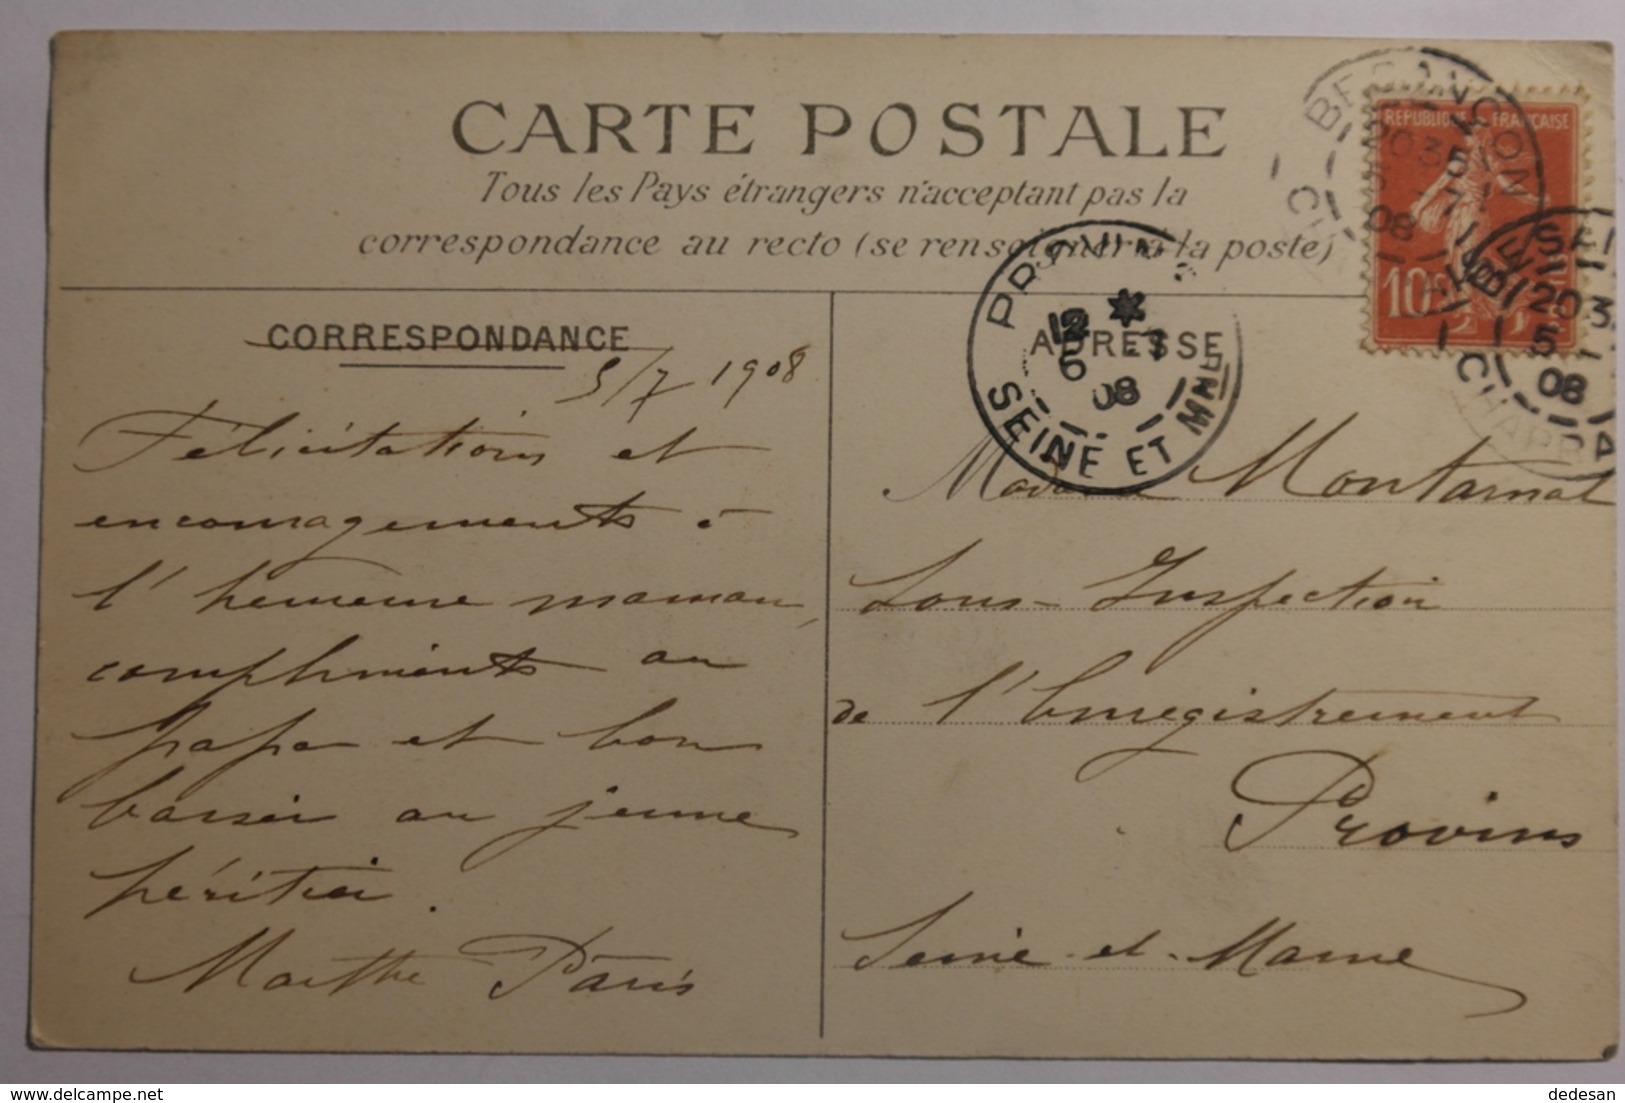 CARTE POSTALE
Tous les Pays étrangers n'acceptent pas la
correspondance au recto (se renseigner à la poste)
RÉPUBLIQUE FRANÇAISE
10
PROVINS
12 *
6 7
08
SEINE ET MARNE
20 3
5 7
08
CORRESPONDANCE
ADRESSE
5/7 1908
Félicitations et
encouragements à
l'heureuse maman,
compliments au
papa et bon
baiser au jeune
héritier.
Marthe Pâris
Madame Montarnal
Sous-Inspection
de l'Enregistrement
Provins
Seine-et-Marne
dedesan